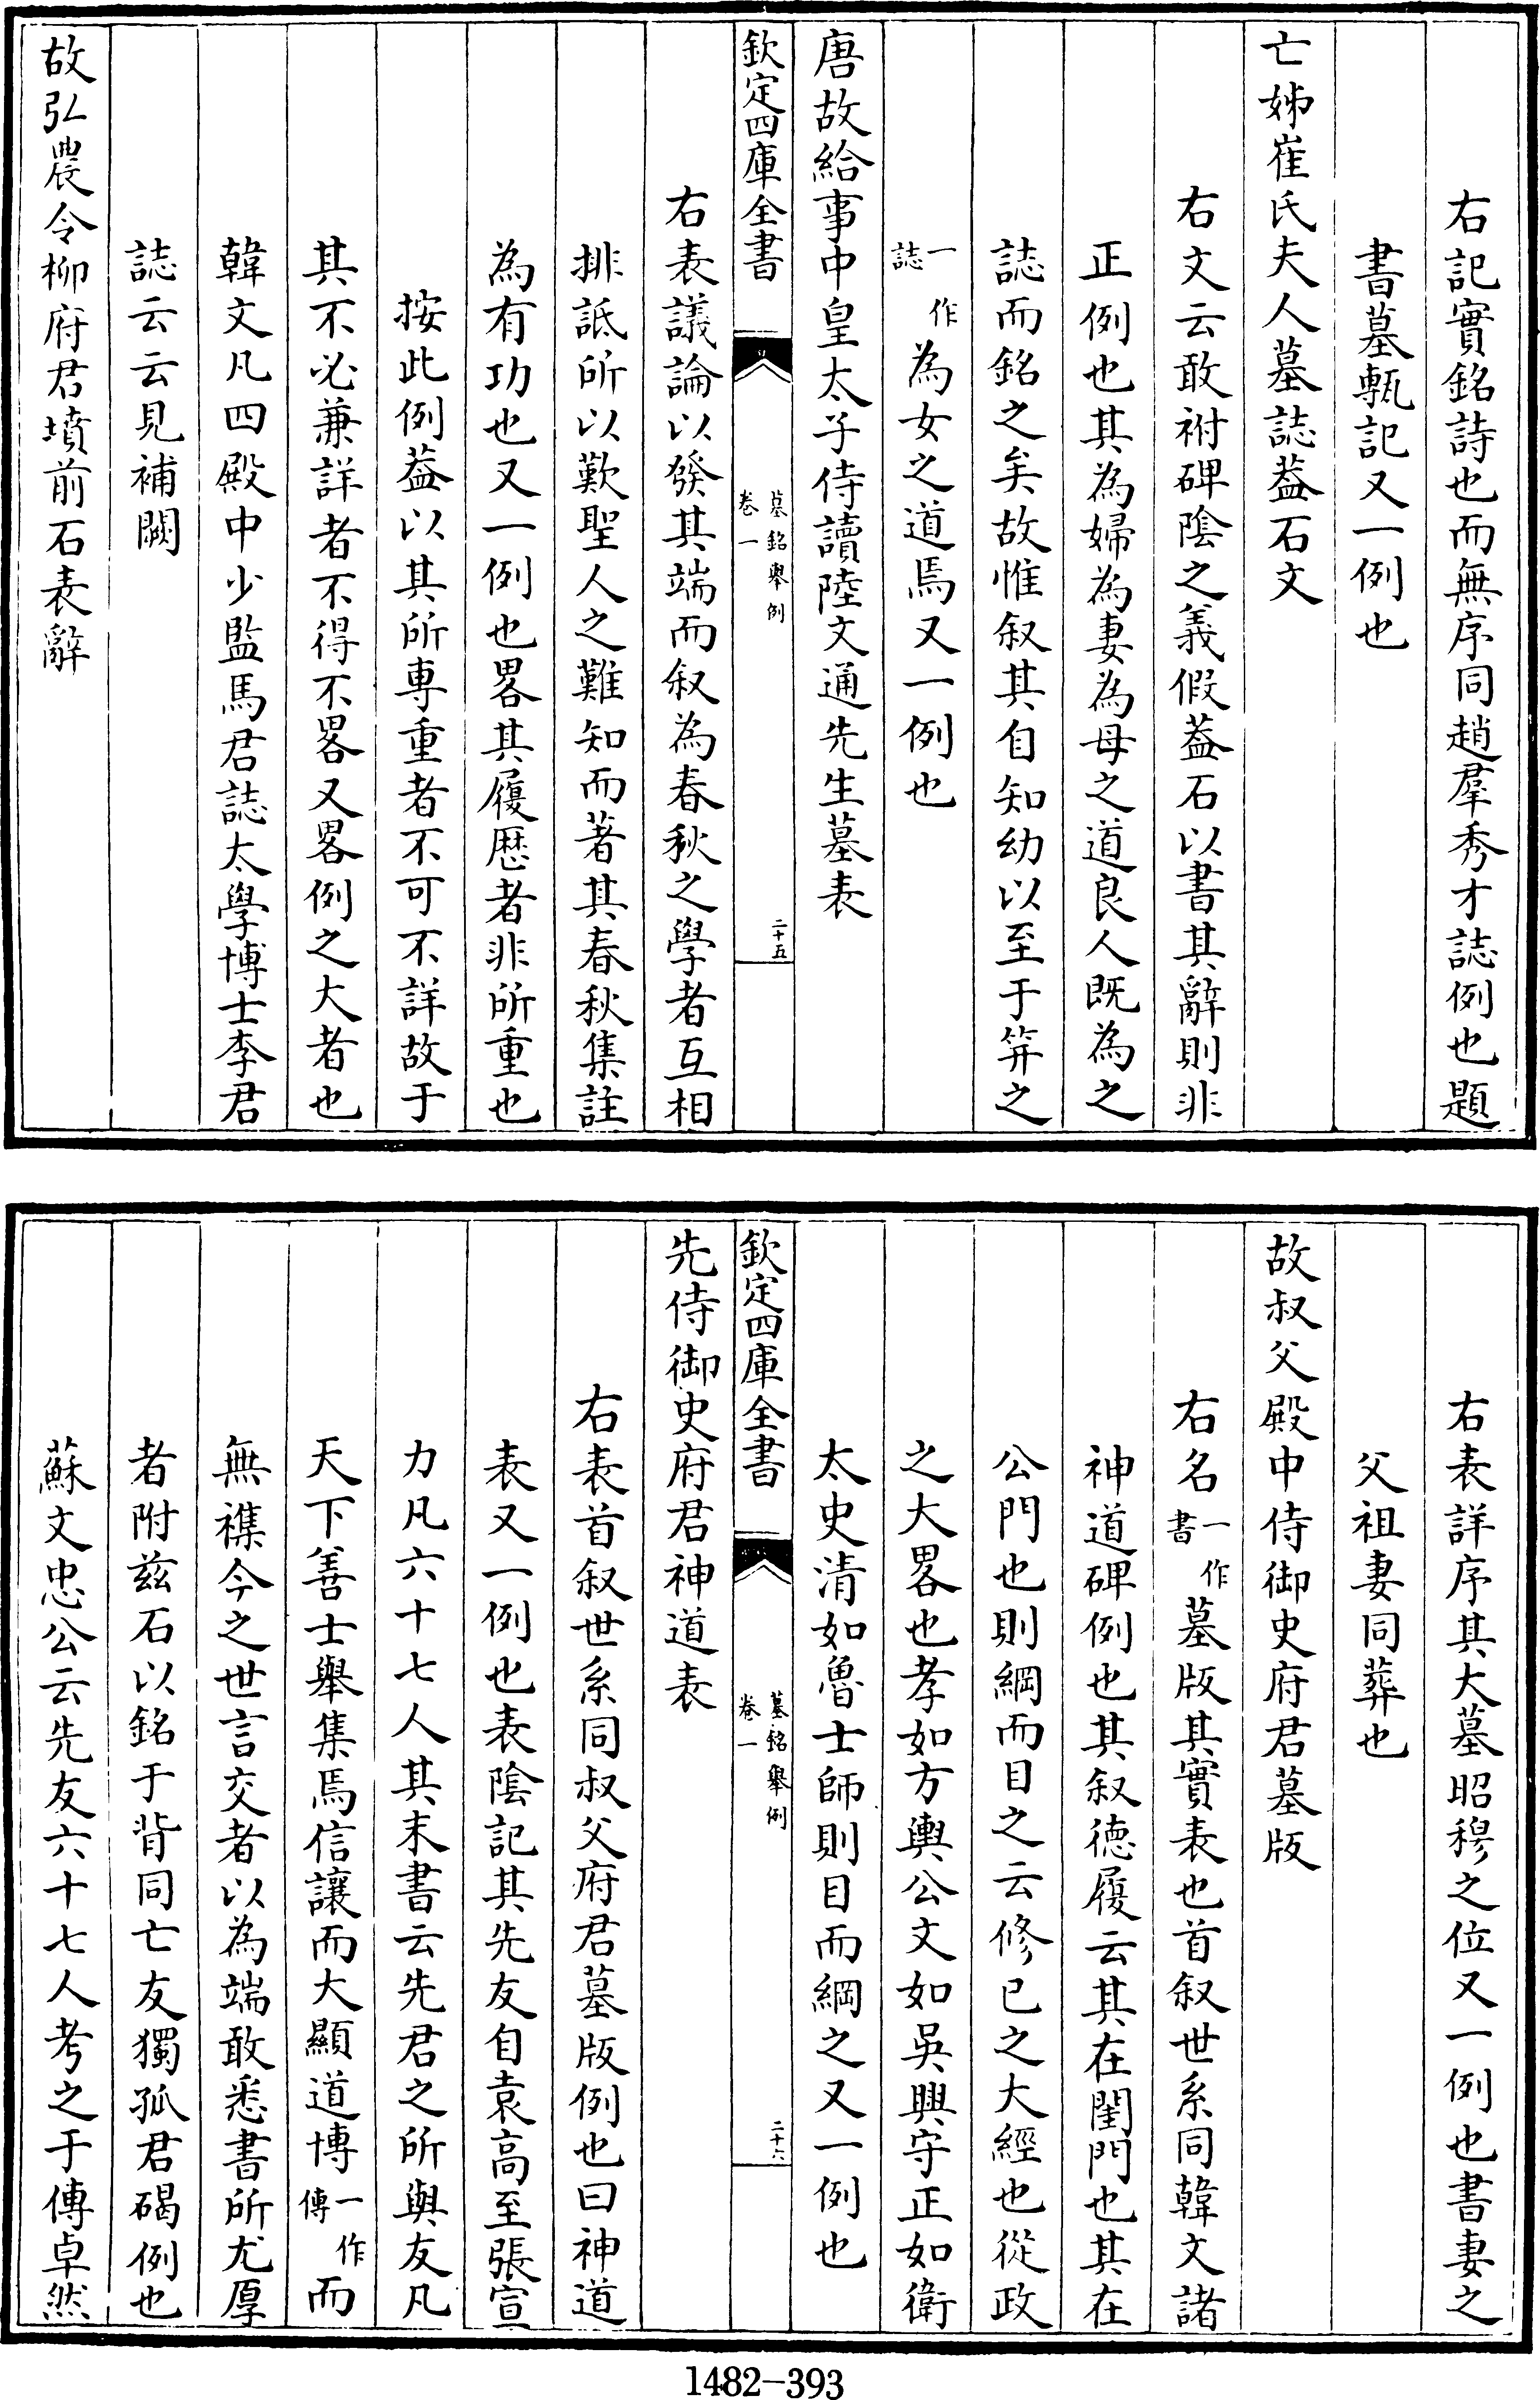 右記實銘詩也而無序同趙羣秀才誌例也題
書墓甎記又一例也
亡姊崔氏夫人墓誌葢石文
右文云敢祔碑陰之義假葢石以書其辭則非
正例也其為婦為妻為母之道良人既為之
誌而銘之矣故惟叙其自知幼以至于筓之
一作誌為女之道焉又一例也
唐故給事中皇太子侍讀陸文通先生墓表
欽定四庫全書
墓銘舉例
卷一
二十五
右表議論以發其端而叙為春秋之學者互相
排詆所以歎聖人之難知而著其春秋集註
為有功也又一例也畧其履歴者非所重也
按此例葢以其所専重者不可不詳故于
其不必兼詳者不得不畧又畧例之大者也
韓文凡四殿中少監馬君誌太學博士李君
誌云云見補闕
故弘農令柳府君墳前石表辭
右表詳序其大墓昭穆之位又一例也書妻之
父祖妻同葬也
故叔父殿中侍御史府君墓版
右名一作書墓版其實表也首叙世系同韓文諸
神道碑例也其叙徳履云其在閨門也其在
公門也則綱而目之云修已之大經也從政
之大畧也孝如方輿公文如吳興守正如衛
太史清如魯士師則目而綱之又一例也
欽定四庫全書
墓銘舉例
卷一
二十六
先侍御史府君神道表
右表首叙世系同叔父府君墓版例也曰神道
表又一例也表陰記其先友自袁高至張宣
力凡六十七人其末書云先君之所與友凡
天下善士舉集焉信讓而大顯道博一作傳而
無襍今之世言交者以為端敢悉書所尤厚
者附兹石以銘于背同亡友獨孤君碣例也
蘇文忠公云先友六十七人考之于傳卓然
1482-393